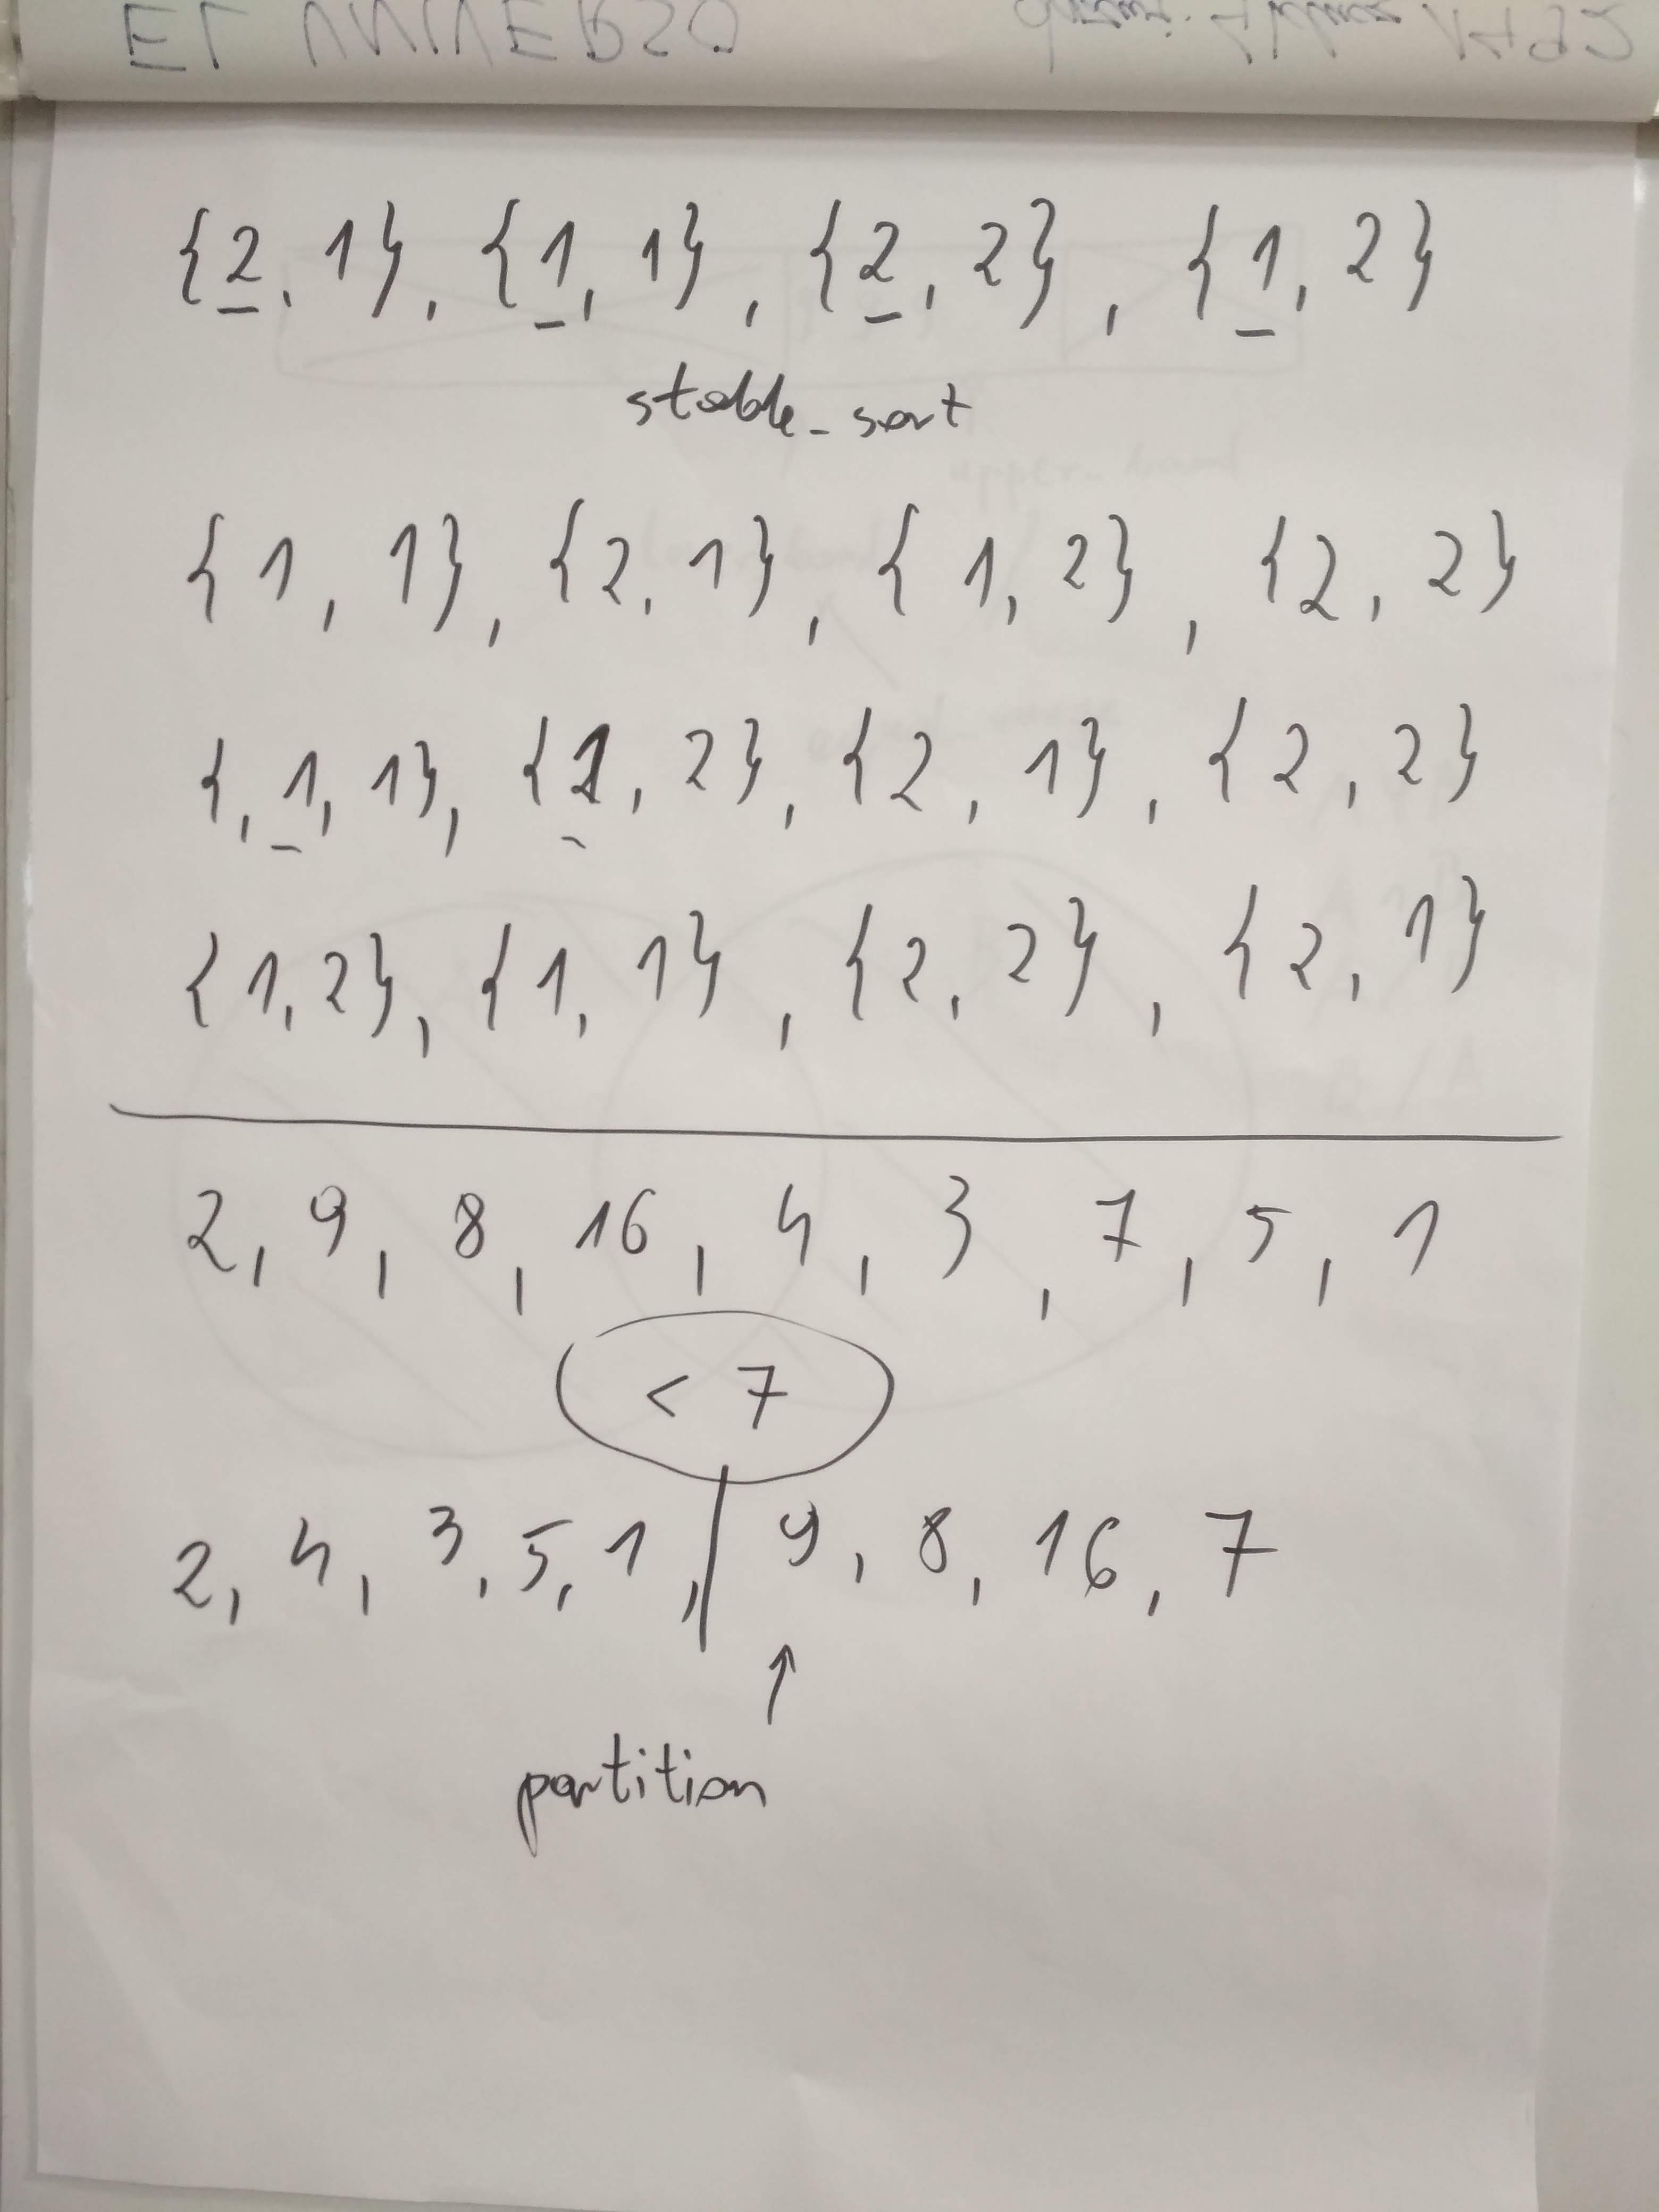 {2, 1}, {1, 1}, {2, 2}, {1, 2}
stable_sort
{1, 1}, {2, 1}, {1, 2}, {2, 2}
{, 1, 1}, {1, 2}, {2, 1}, {2, 2}
{1, 2}, {1, 1}, {2, 2}, {2, 1}
2, 9, 8, 16, 4, 3, 7, 5, 1
< 7
2, 4, 3, 5, 1, | 9, 8, 16, 7
↑
partition